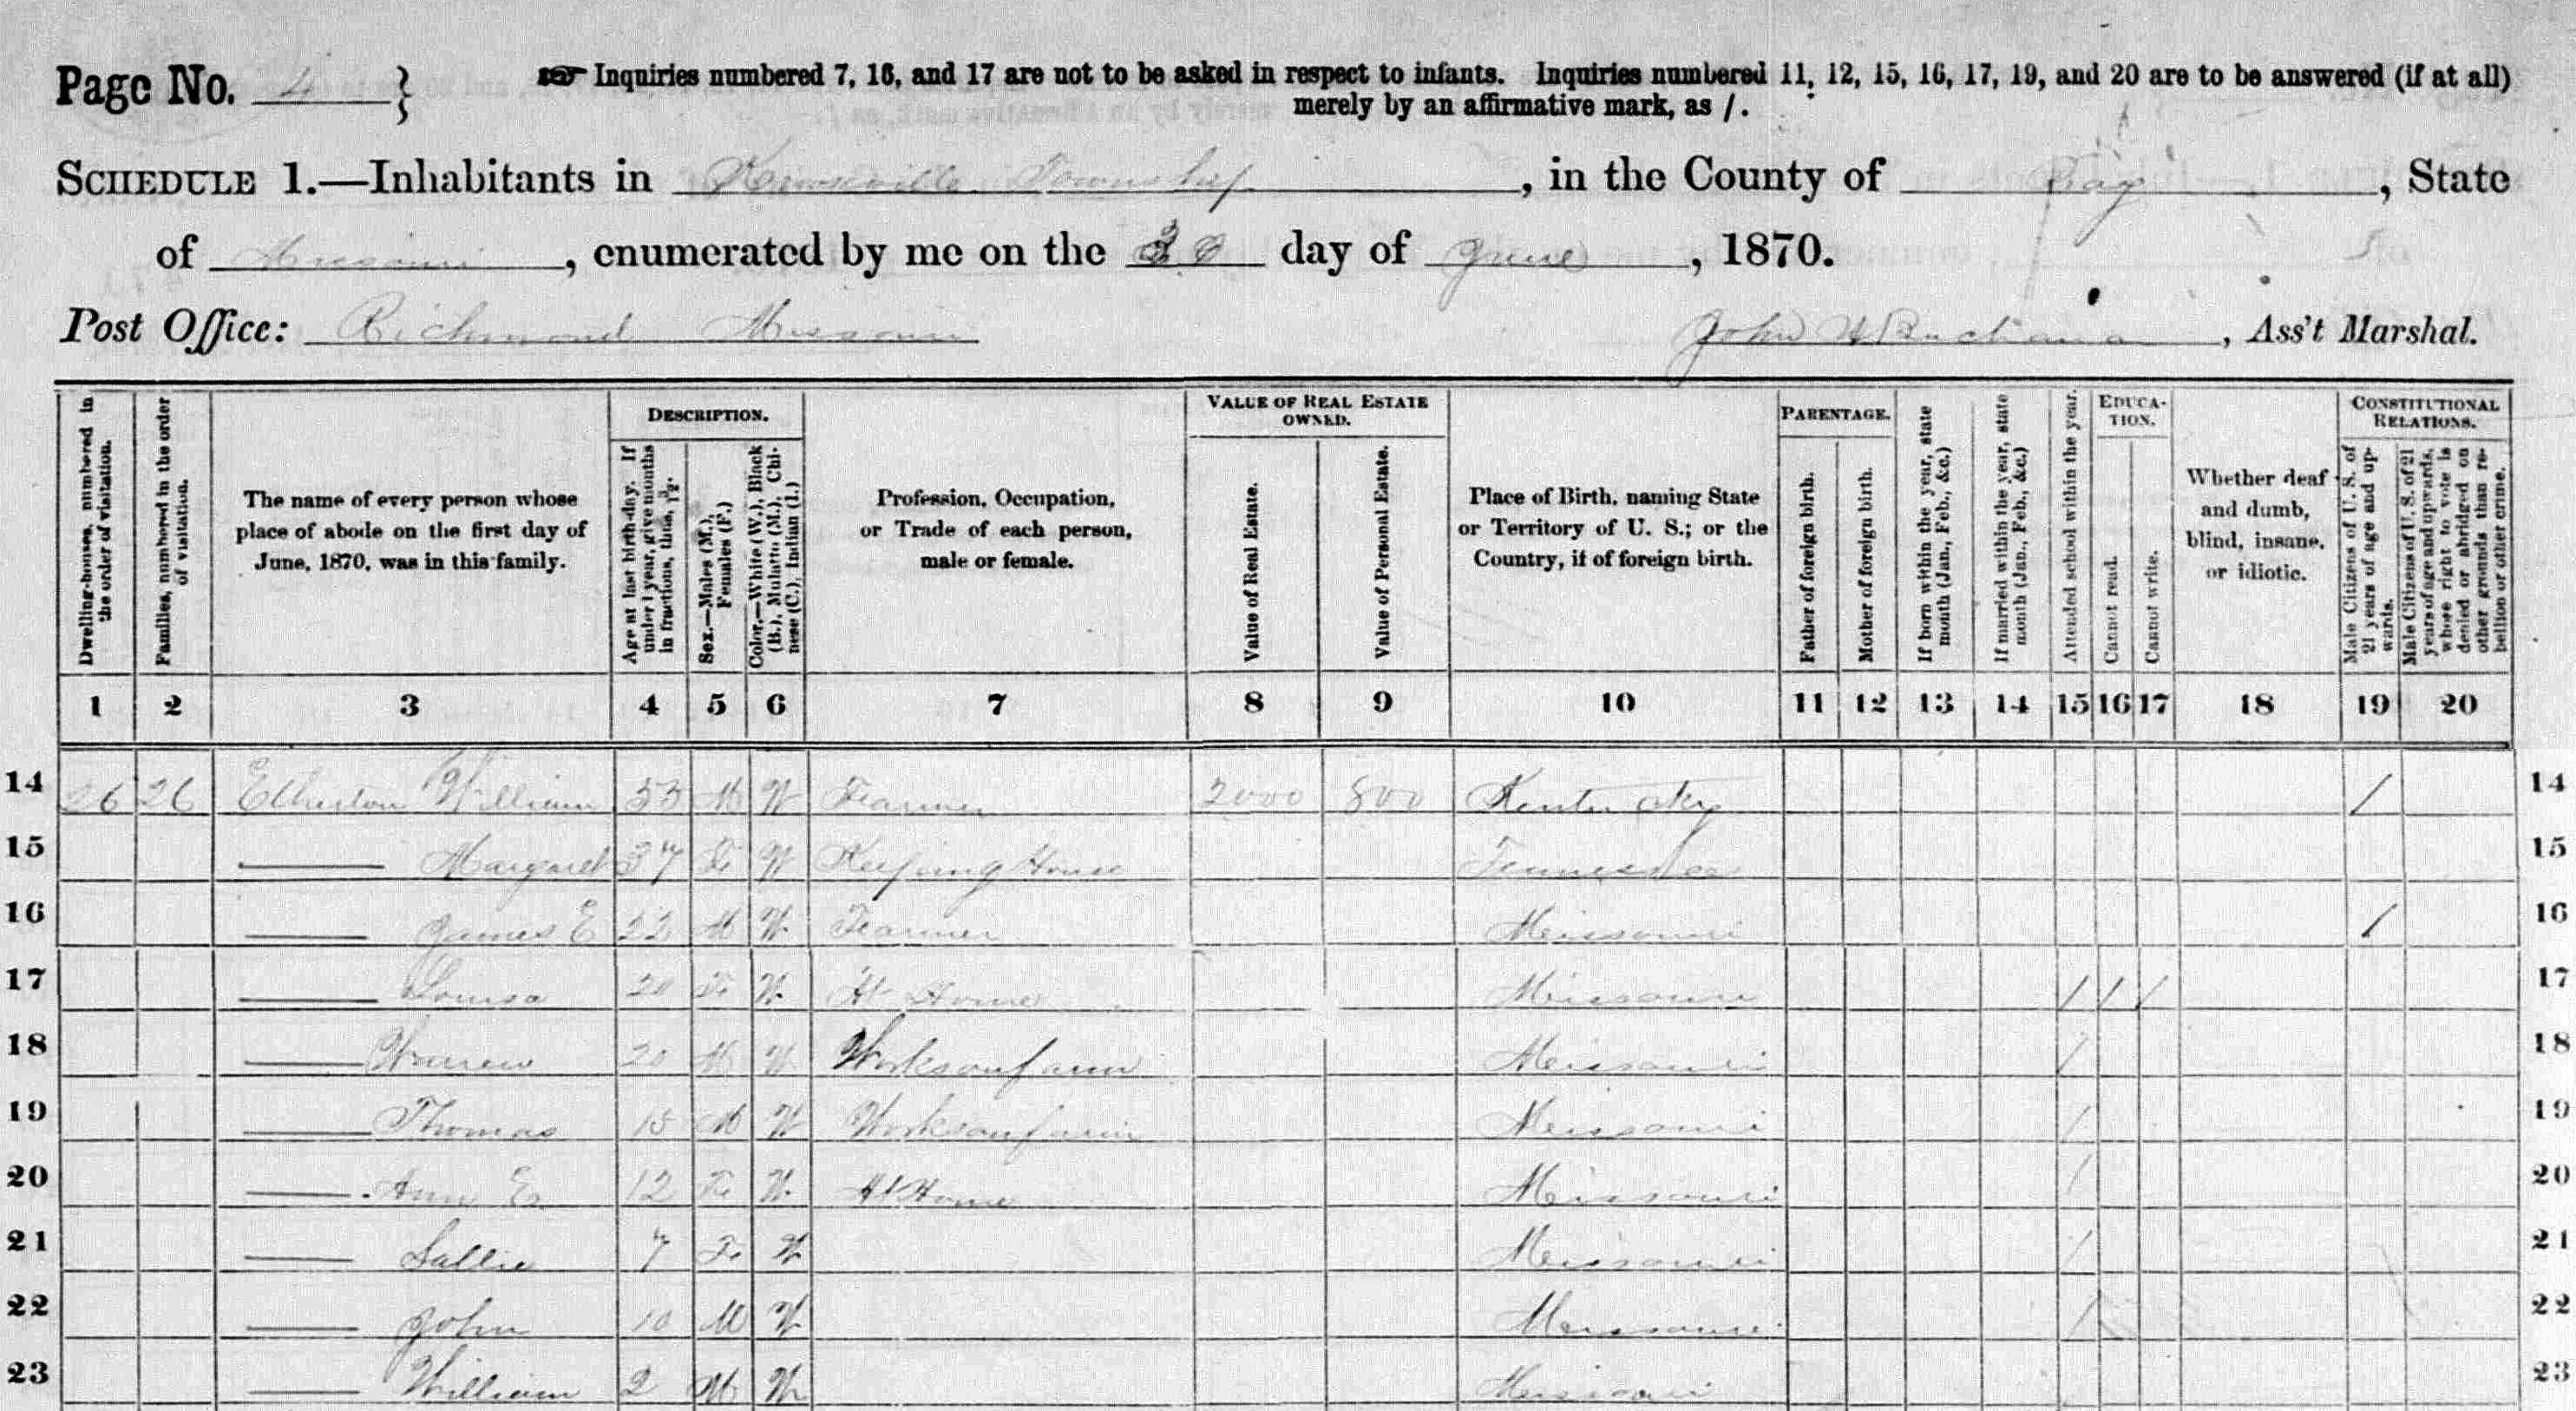 Page No. 4 }
Inquiries numbered 7, 16, and 17 are not to be asked in respect to infants. Inquiries numbered 11, 12, 15, 16, 17, 19, and 20 are to be answered (if at all)
merely by an affirmative mark, as /.
SCHEDULE 1.—Inhabitants in Township, in the County of Ray, State
of Missouri, enumerated by me on the day of June, 1870.
Post Office: Richmond Missouri John Ass't Marshal.
Dwelling-houses, numbered in the order of visitation.
Families, numbered in the order of visitation.
The name of every person whose place of abode on the first day of June, 1870, was in this family.
DESCRIPTION.
Age at last birth-day. If under 1 year, give months in fractions, thus, 3/12.
Sex.—Males (M.), Females (F.)
Color.—White (W.), Black (B.), Mulatto (M.), Chinese (C.), Indian (I.)
Profession, Occupation, or Trade of each person, male or female.
VALUE OF REAL ESTATE OWNED.
Value of Real Estate.
Value of Personal Estate.
Place of Birth, naming State or Territory of U. S.; or the Country, if of foreign birth.
PARENTAGE.
Father of foreign birth.
Mother of foreign birth.
If born within the year, state month (Jan., Feb., &c.)
If married within the year, state month (Jan., Feb., &c.)
Attended school within the year.
EDUCATION.
Cannot read.
Cannot write.
Whether deaf and dumb, blind, insane, or idiotic.
CONSTITUTIONAL RELATIONS.
Male Citizens of U. S. of 21 years of age and upwards.
Male Citizens of U. S. of 21 years of age and upwards, whose right to vote is denied or abridged on other grounds than rebellion or other crime.
1 2 3 4 5 6 7 8 9 10 11 12 13 14 15 16 17 18 19 20
14 26 26 Etherton William 53 M W Farmer 2000 800 Kentucky / 14
15 — Margaret 37 F W Keeping House Tennessee 15
16 — James E 22 M W Farmer Missouri / 16
17 — Louisa 20 F W At Home Missouri / / / 17
18 — 20 M W Works on farm Missouri / 18
19 — Thomas 15 M W Works on farm Missouri / 19
20 — Ann E 12 F W At Home Missouri / 20
21 — Sallie 7 F W Missouri / 21
22 — John 10 M W Missouri / 22
23 — William 2 M W Missouri 23